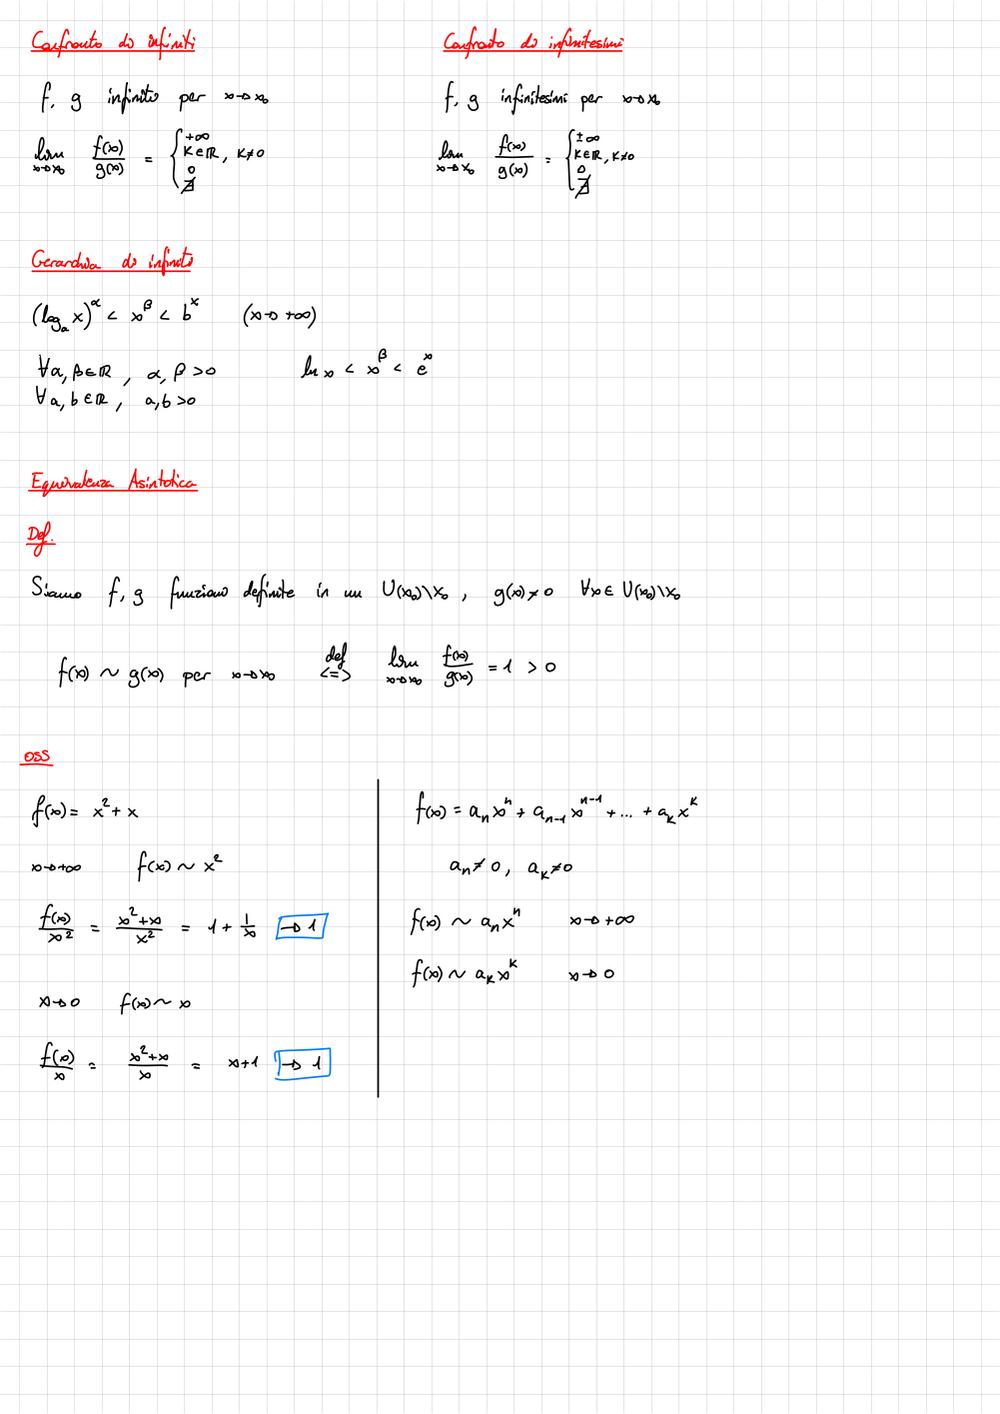 Confronto di infiniti
f, g infiniti per x→x₀
lim x→x₀ f(x)/g(x) = { +∞
K∈ℝ, K≠0
0
∄
Confronto di infinitesimi
f, g infinitesimi per x→x₀
lim x→x₀ f(x)/g(x) = { ±∞
K∈ℝ, K≠0
0
∄
Gerarchia di infiniti
(logₐ x)^α < x^β < b^x (x→+∞)
∀α, β∈ℝ, α, β >0 ln x < x^β < e^x
∀a, b∈ℝ, a,b >0
Equivalenza Asintotica
Def.
Siano f, g funzioni definite in un U(x₀)\x₀, g(x)≠0 ∀x∈U(x₀)\x₀
f(x) ~ g(x) per x→x₀ def <=> lim x→x₀ f(x)/g(x) = 1 > 0
OSS
f(x) = x² + x
x→+∞ f(x) ~ x²
f(x)/x² = (x²+x)/x² = 1 + 1/x →1
x→0 f(x) ~ x
f(x)/x = (x²+x)/x = x+1 →1
f(x) = aₙxⁿ + aₙ₋₁xⁿ⁻¹ + ... + aₖx^k
aₙ≠0, aₖ≠0
f(x) ~ aₙxⁿ x→+∞
f(x) ~ aₖx^k x→0